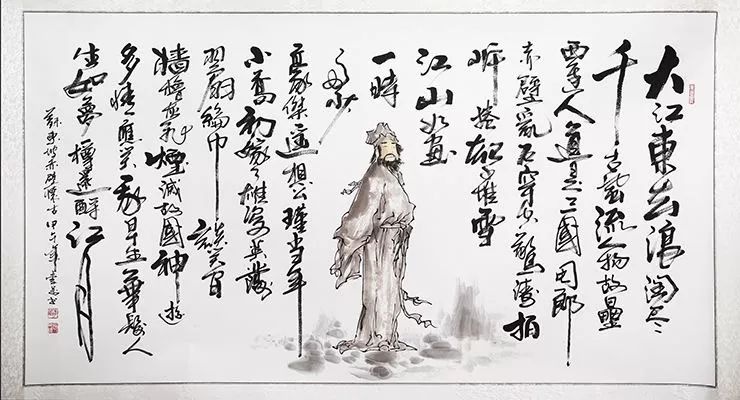 大江東去浪淘盡
千古風流人物故壘
西邊人道是三國周郎
赤壁亂石穿空驚濤拍
岸捲起千堆雪
江山如畫
一時
多少
豪傑遙想公瑾當年
小喬初嫁了雄姿英發
羽扇綸巾談笑間
檣櫓灰飛煙滅故國神遊
多情應笑我早生華髮人
生如夢樽還酹江月
蘇東坡赤壁懷古甲午年